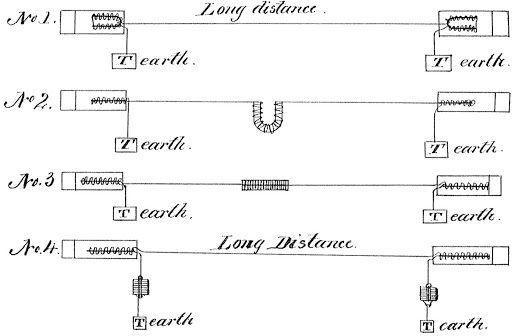 No. 1. Long distance.
T earth. T earth.
No 2.
T earth. T earth.
No. 3
T earth. T earth.
No. 4. Long Distance.
T earth T earth.